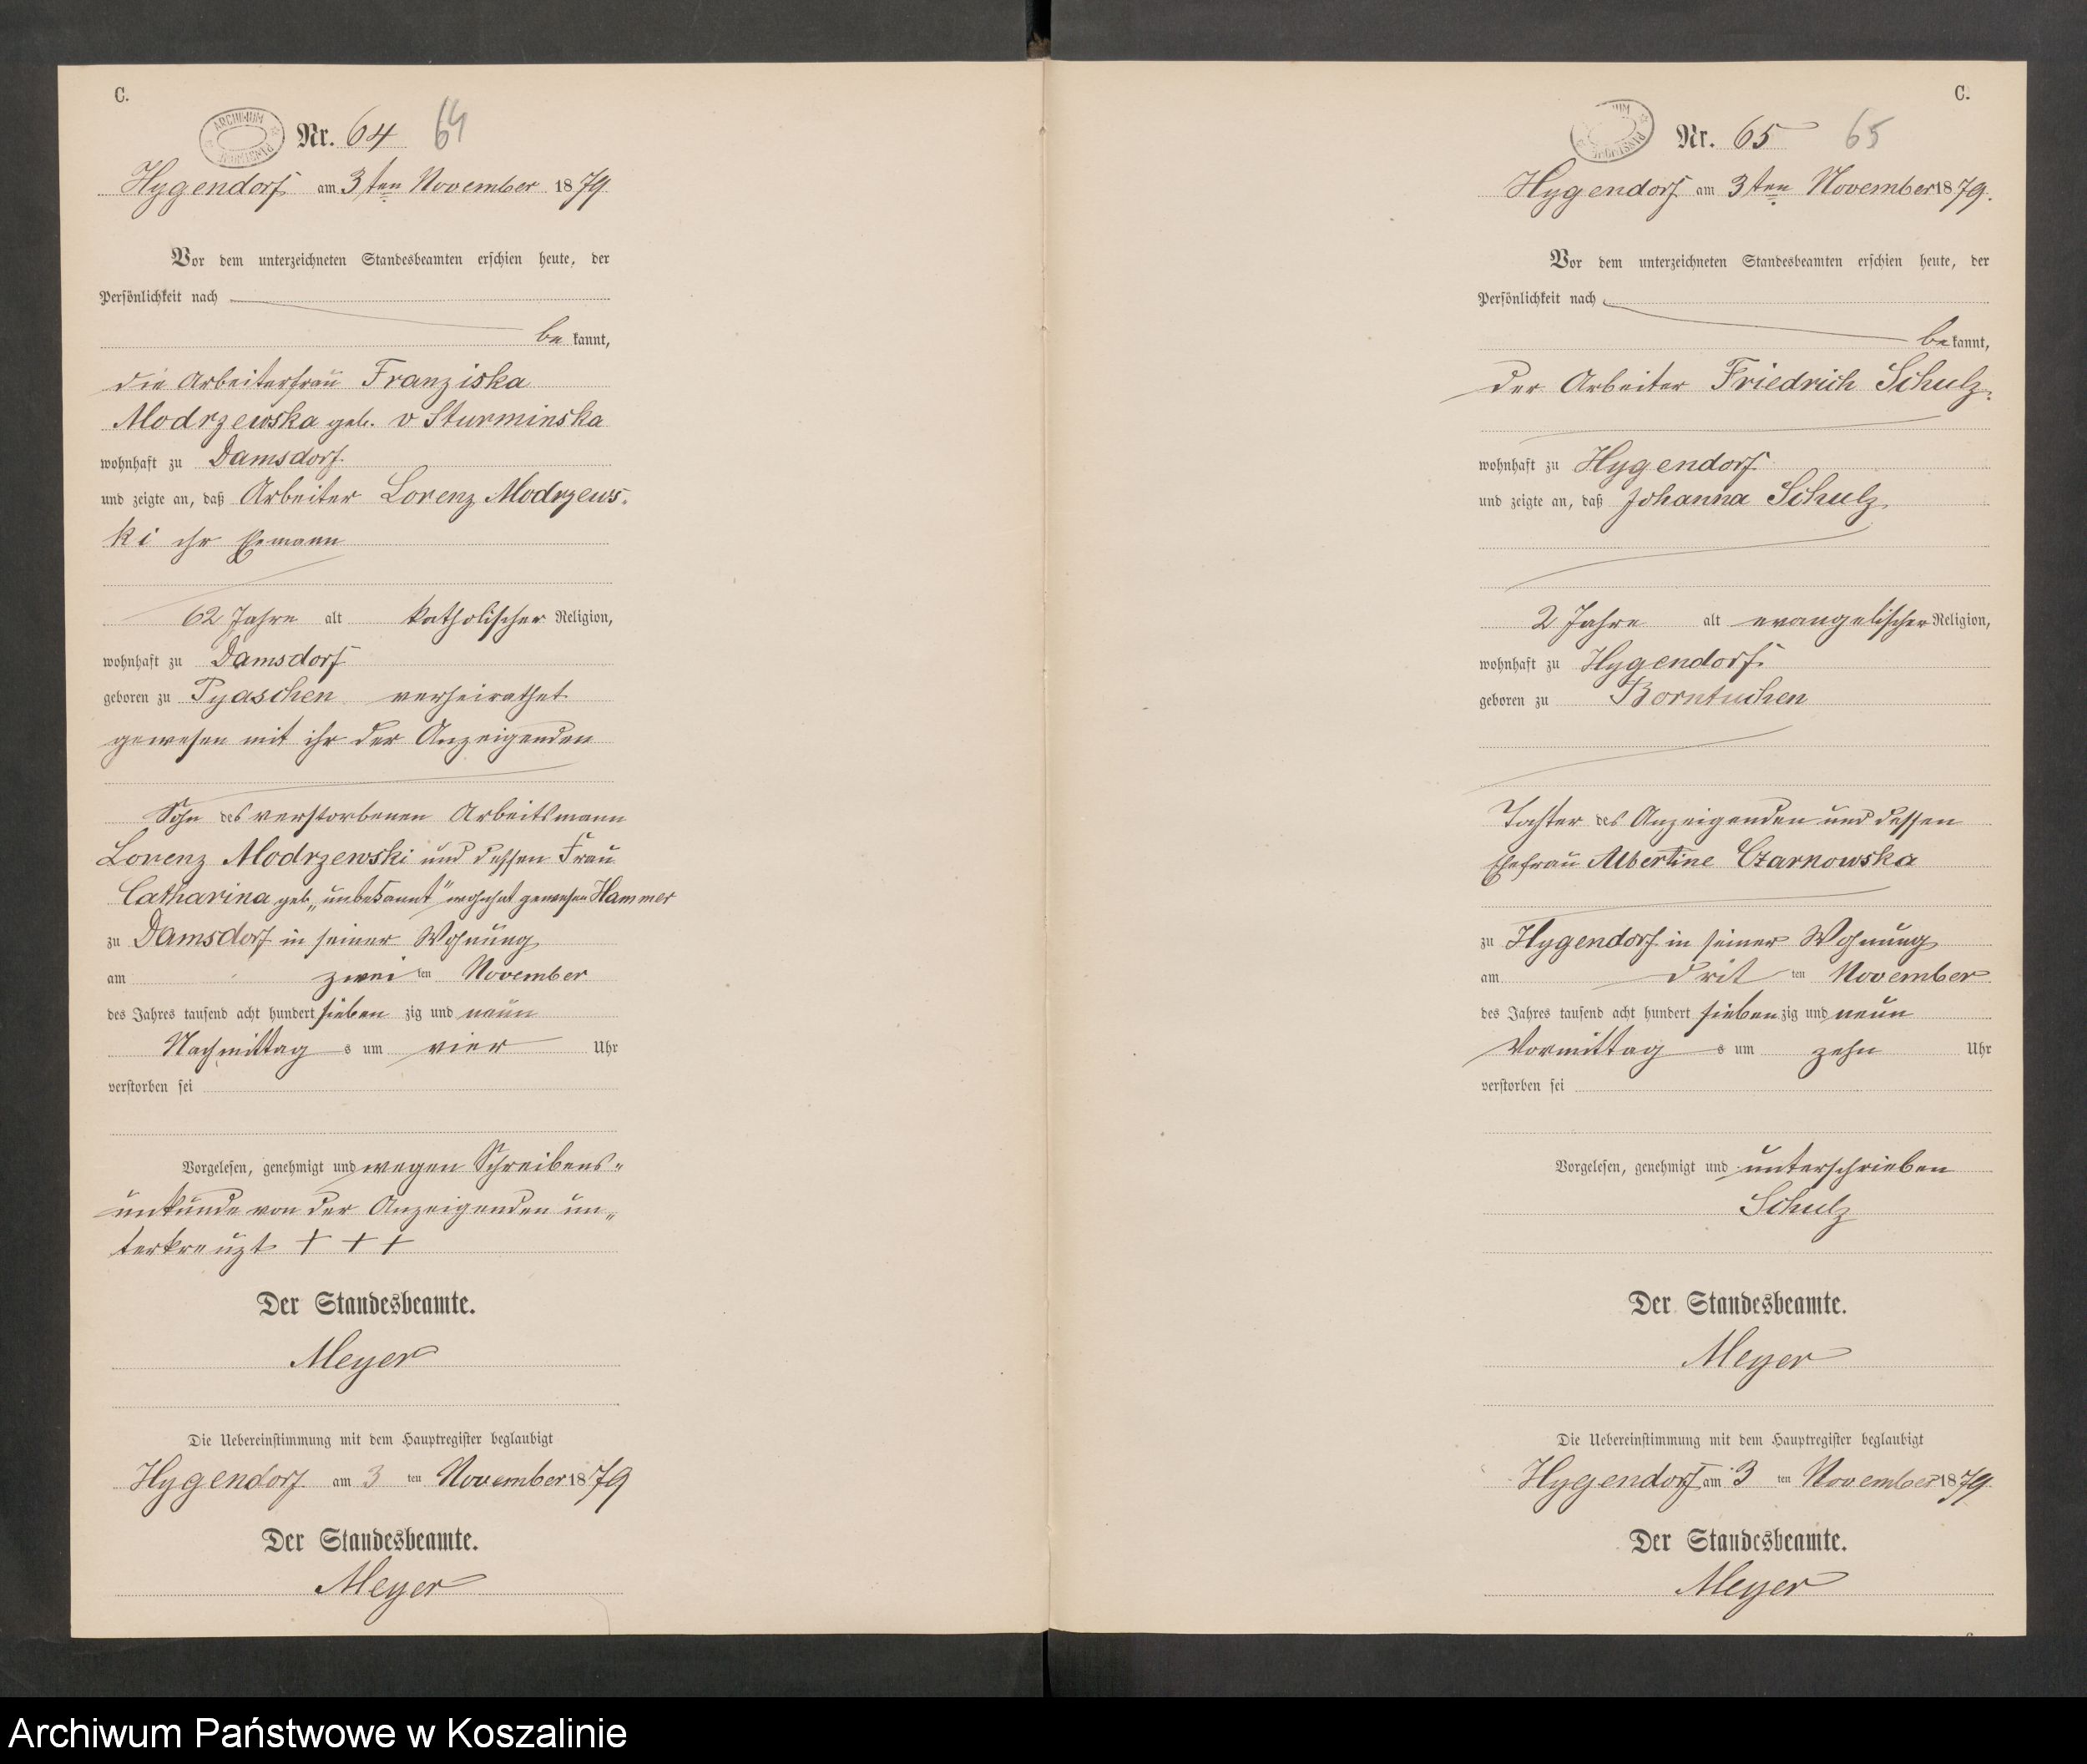 C.
ARCHIWUM PAŃSTWOWE
Nr. 64 64
Hygendorf am 3ten November 1879
Vor dem unterzeichneten Standesbeamten erschien heute, der
Persönlichkeit nach
be kannt,
die Arbeiterfrau Franziska
Modrzewska geb. v Sturminska
wohnhaft zu Damsdorf
und zeigte an, daß Arbeiter Lorenz Modrzews-
ki ihr Ehemann
62 Jahre alt katholischer Religion,
wohnhaft zu Damsdorf
geboren zu Pyaschen verheirathet
gewesen mit ihr der Anzeigenden
Sohn des verstorbenen Arbeitsmann
Lorenz Modrzewski und dessen Frau
Catharina geb. „unbekannt" wohnhaft gewesen Hammer
zu Damsdorf in seiner Wohnung
am zwei ten November
des Jahres tausend acht hundert sieben zig und neun
Nachmittag s um vier Uhr
verstorben sei
Vorgelesen, genehmigt und wegen Schreibens-
unkunde von der Anzeigenden un-
terkreuzt + + +
Der Standesbeamte.
Meyer
Die Uebereinstimmung mit dem Hauptregister beglaubigt
Hygendorf am 3 ten November 1879
Der Standesbeamte.
Meyer
C.
Nr. 65 65
Hygendorf am 3ten November 1879.
Vor dem unterzeichneten Standesbeamten erschien heute, der
Persönlichkeit nach
be kannt,
der Arbeiter Friedrich Schulz
wohnhaft zu Hygendorf
und zeigte an, daß Johanna Schulz
2 Jahre alt evangelischer Religion,
wohnhaft zu Hygendorf
geboren zu Borntuchen
Tochter des Anzeigenden und dessen
Ehefrau Albertine Czarnowska
zu Hygendorf in seiner Wohnung
am drit ten November
des Jahres tausend acht hundert sieben zig und neun
Vormittag s um zehn Uhr
verstorben sei
Vorgelesen, genehmigt und unterschrieben
Schulz
Der Standesbeamte.
Meyer
Die Uebereinstimmung mit dem Hauptregister beglaubigt
Hygendorf am 3 ten November 1879.
Der Standesbeamte.
Meyer
Archiwum Państwowe w Koszalinie